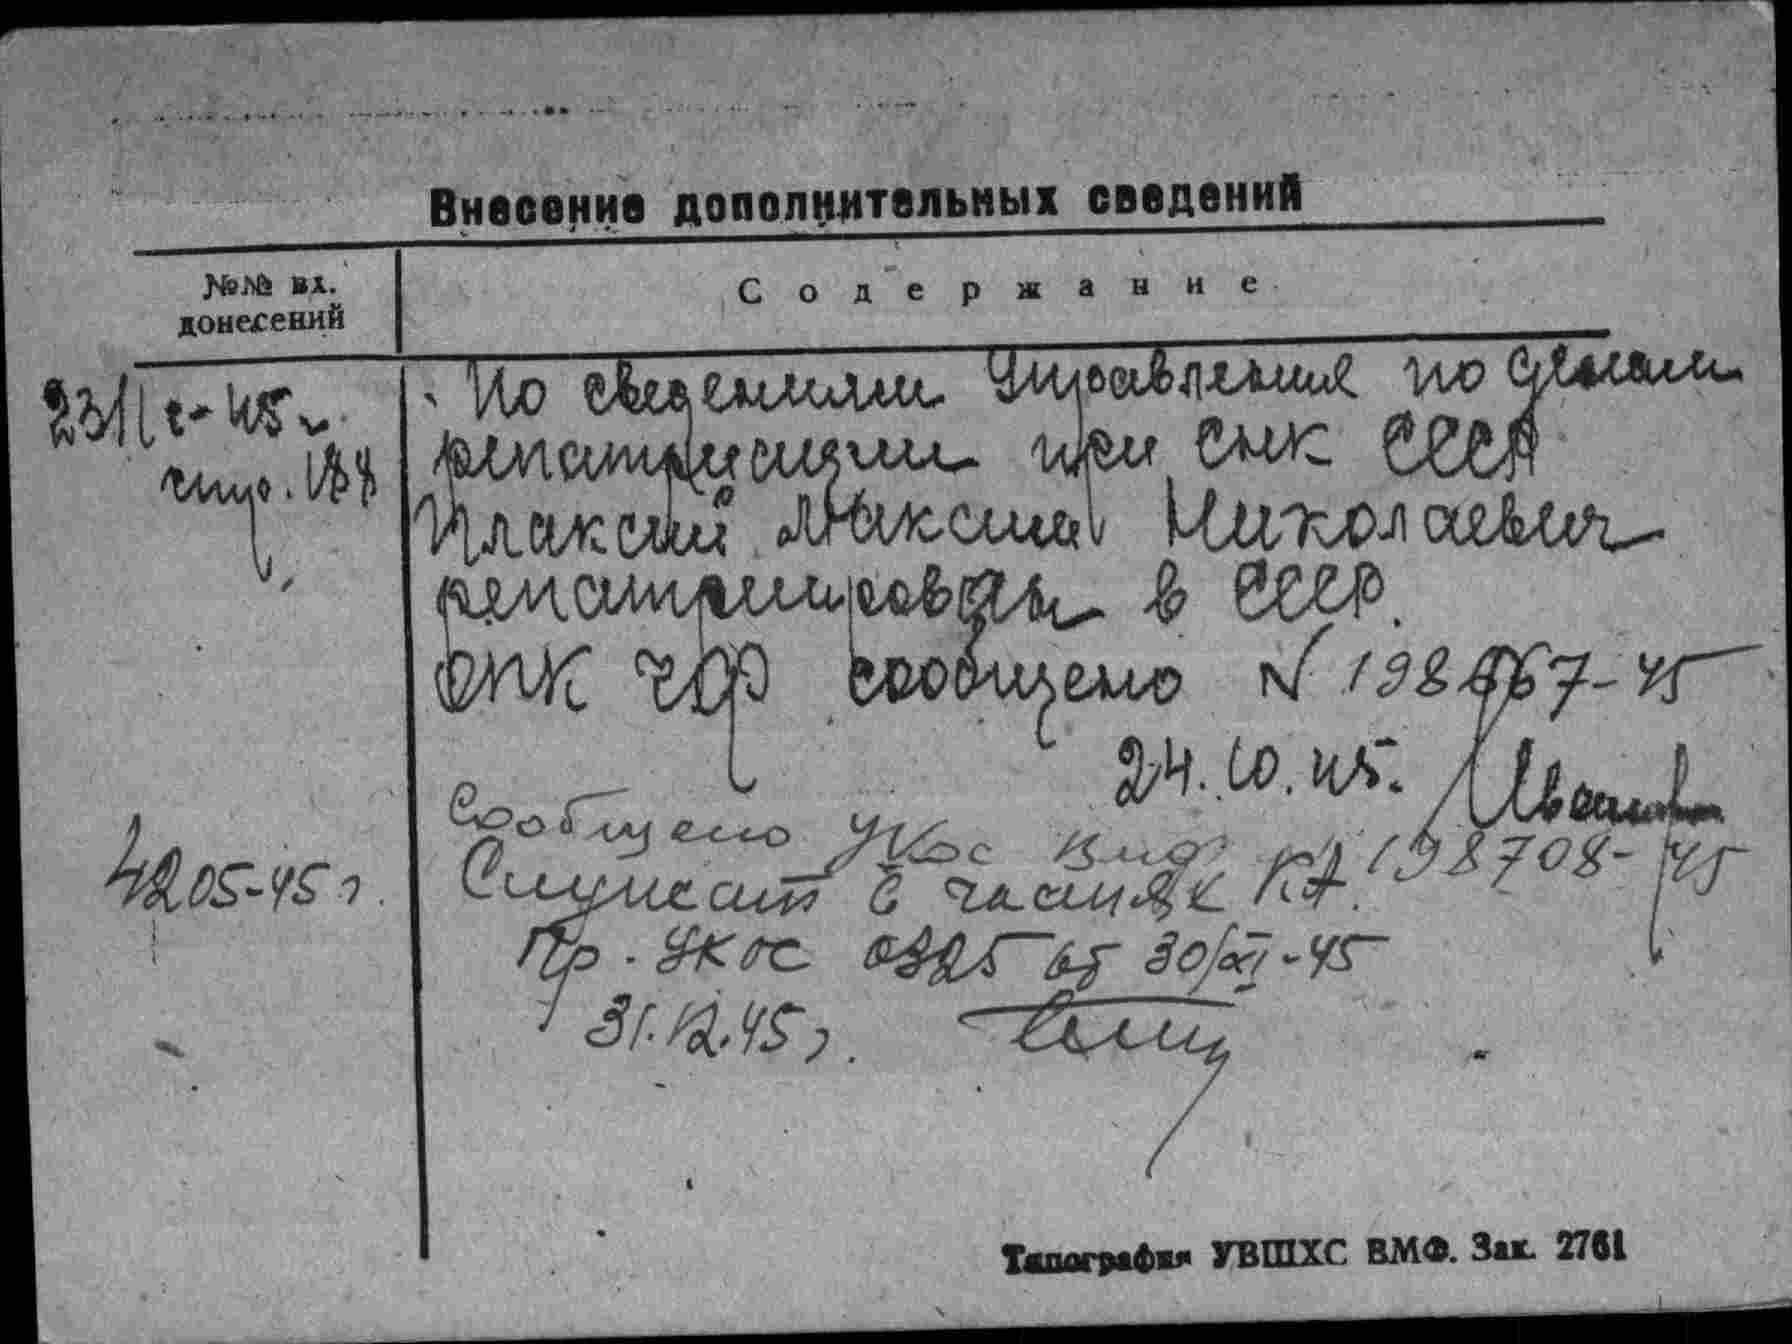 Внесение дополнительных сведений
№№ вх.
донесений
Содержание
По сведениям Управления по делам
репатриации при СНК СССР
Плаксий Максим Николаевич
репатриирован в СССР.
стр. 188
ОПК ЧФ сообщено N 198667-45
24.10.45.
Сообщено УКОС
КА 198708-45
4205-45 г.
Служит в частях КА.
Пр. УКОС 0325 от 30/XI-45
31.12.45 г.
Типография УВШХС ВМФ. Зак. 2761